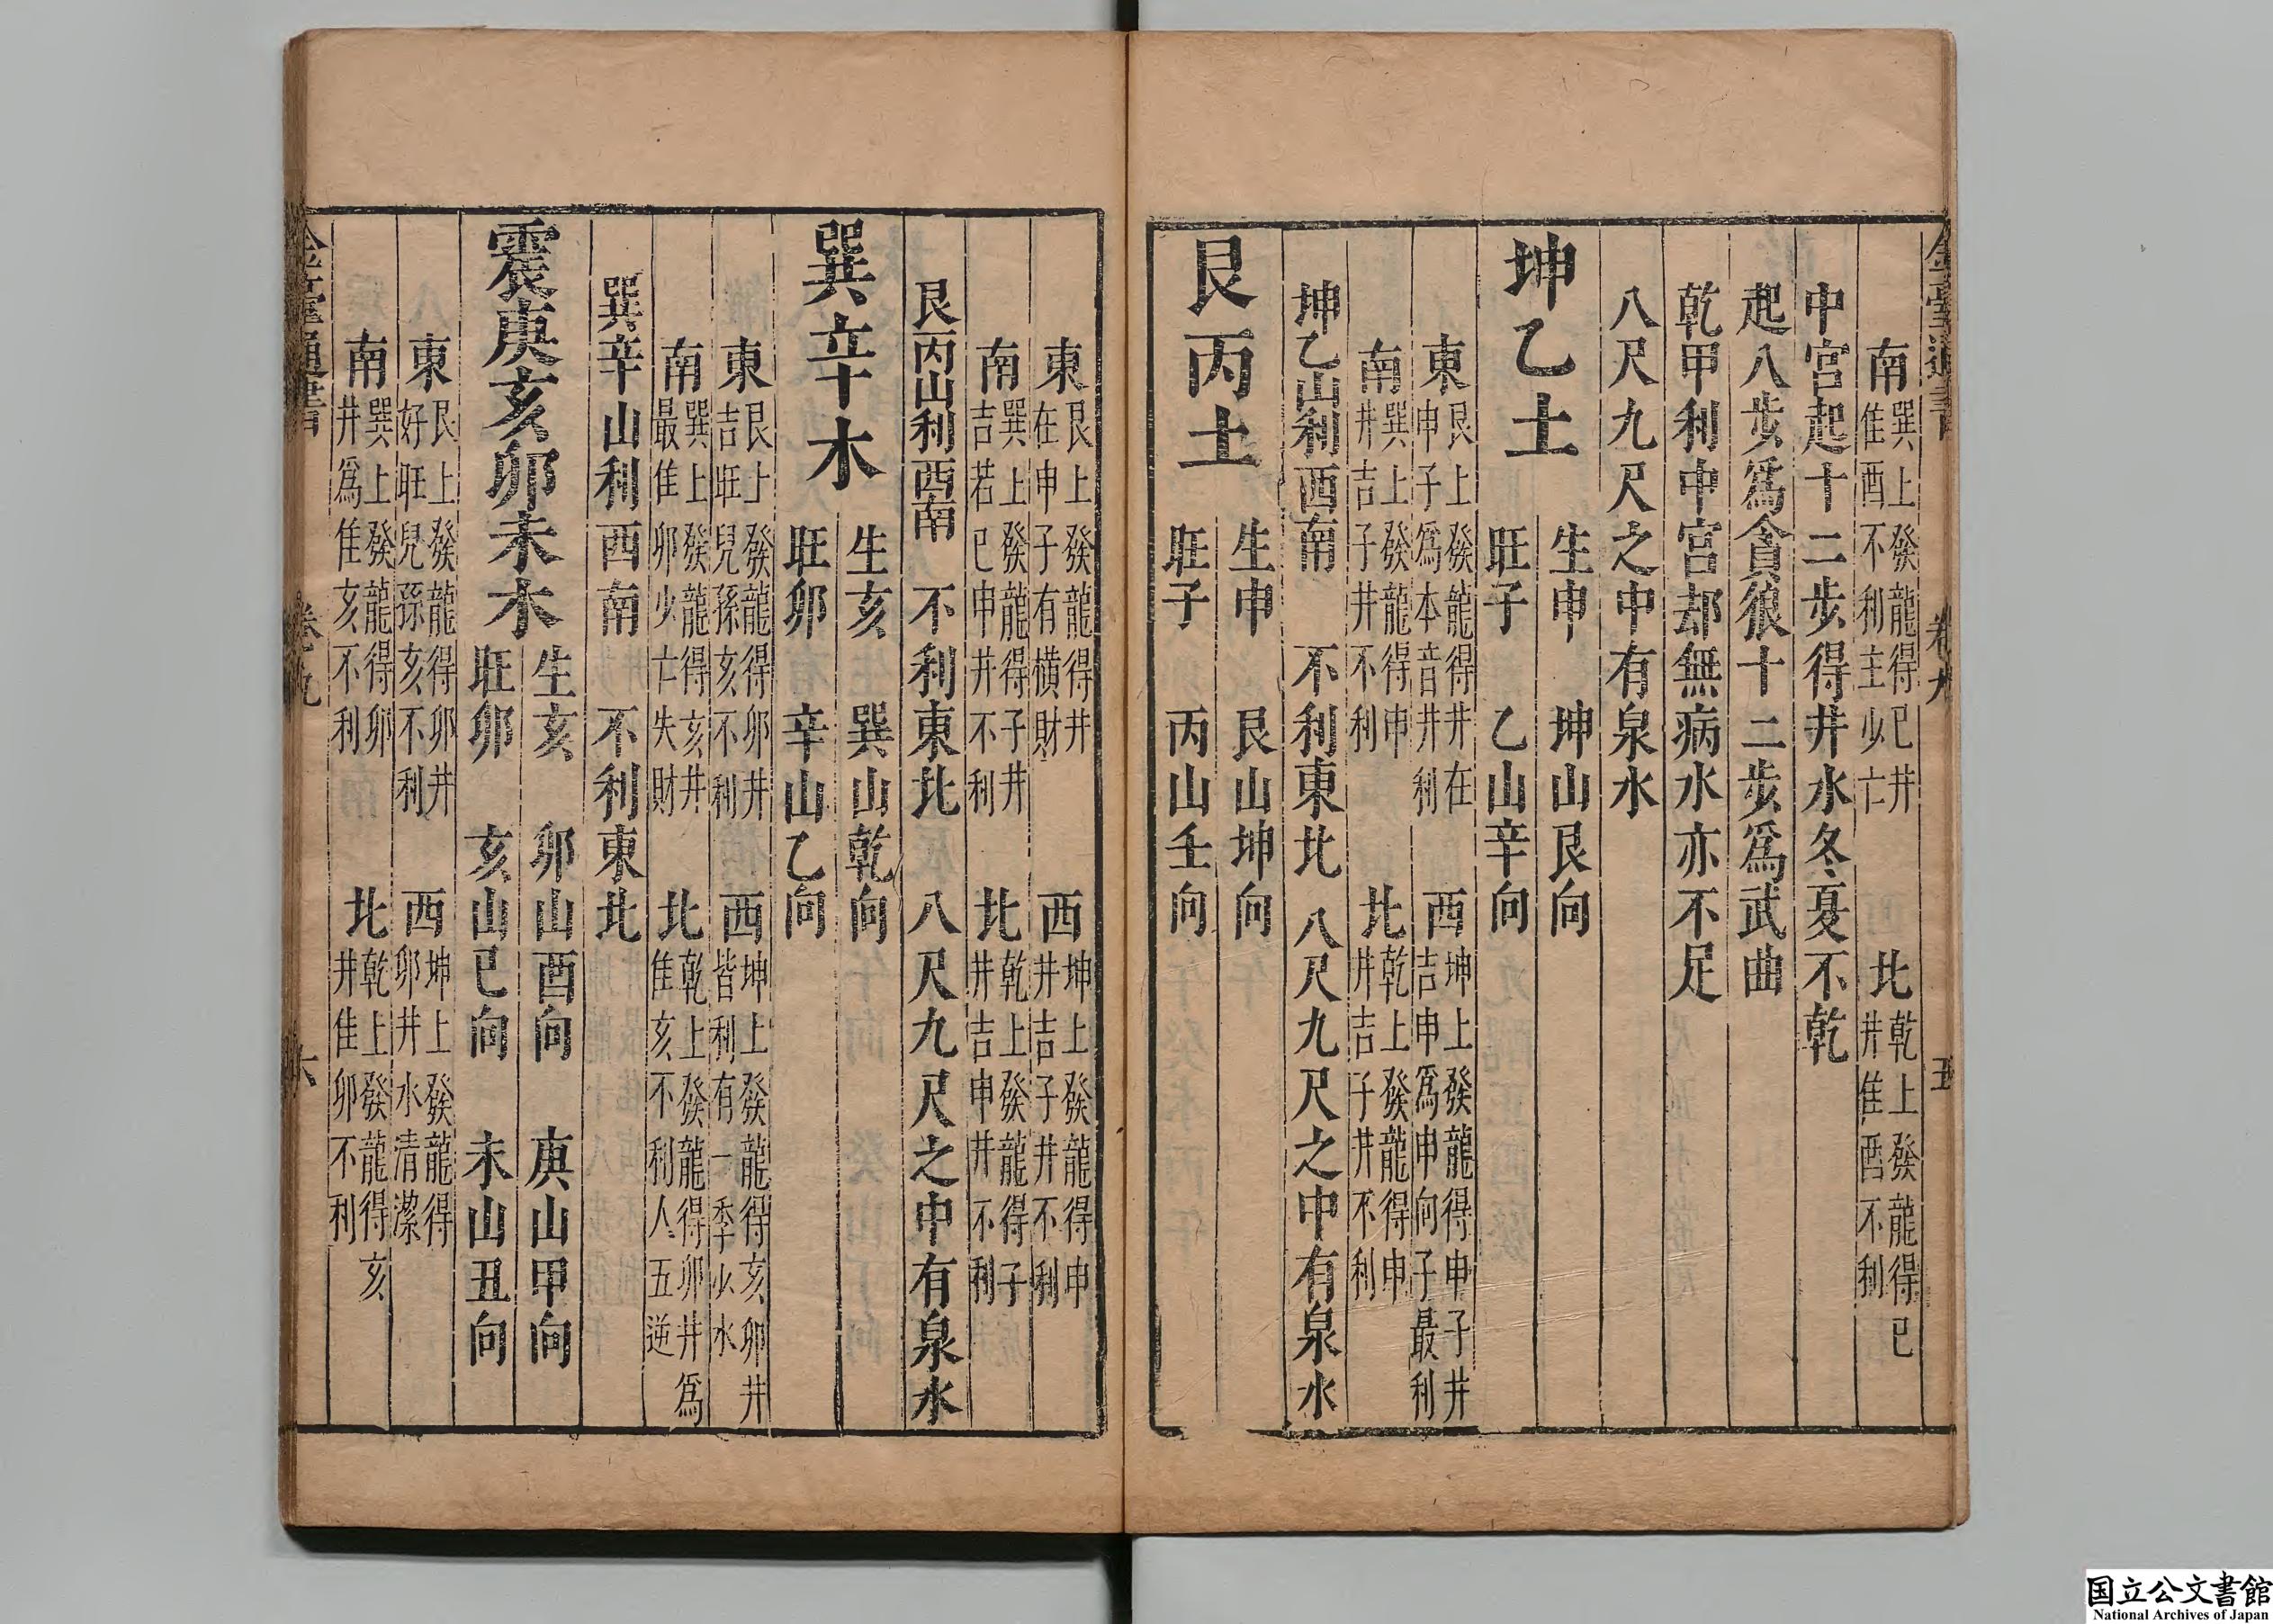 南 巽上發龍得巳井 隹酉不利主少亡 北 乾上發龍得巳 井隹酉不利
中宮起十二步得井水冬夏不乾
起八步爲貪狼十二步爲武曲
乾甲利中宮却無病水亦不足
八尺九尺之中有泉水
坤乙土 生申 坤山艮向
旺子 乙山辛向
東 艮上發龍得井在 申子爲本音井利 西 坤上發龍得申子井 吉申爲申向子最利
南 巽上發龍得申 井吉子井不利 北 乾上發龍得申 井吉子井不利
坤乙山利西南 不利東北 八尺九尺之中有泉水
艮丙土 生申 艮山坤向
旺子 丙山壬向
東 艮上發龍得井 在申子有橫財 西 坤上發龍得申 井吉子井不利
南 巽上發龍得子井 吉若巳申井不利 北 乾上發龍得子 井吉申井不利
艮丙山利西南 不利東北 八尺九尺之中有泉水
巽辛木 生亥 巽山乾向
旺卯 辛山乙向
東 艮上發龍得卯井 吉旺兒孫亥不利 西 坤上發龍得亥卯井 皆利有一季少水
南 巽上發龍得亥井 最隹卯少亡失財 北 乾上發龍得卯井爲 隹亥不利人五逆
巽辛山利西南 不利東北
震庚亥卯未木 生亥 卯山酉向 庚山甲向
旺卯 亥山巳向 未山丑向
東 艮上發龍得卯井 好旺兒孫亥不利 西 坤上發龍得 卯井水清潔
南 巽上發龍得卯 井爲隹亥不利 北 乾上發龍得亥 井隹卯不利
卷九
六
国立公文書館
National Archives of Japan